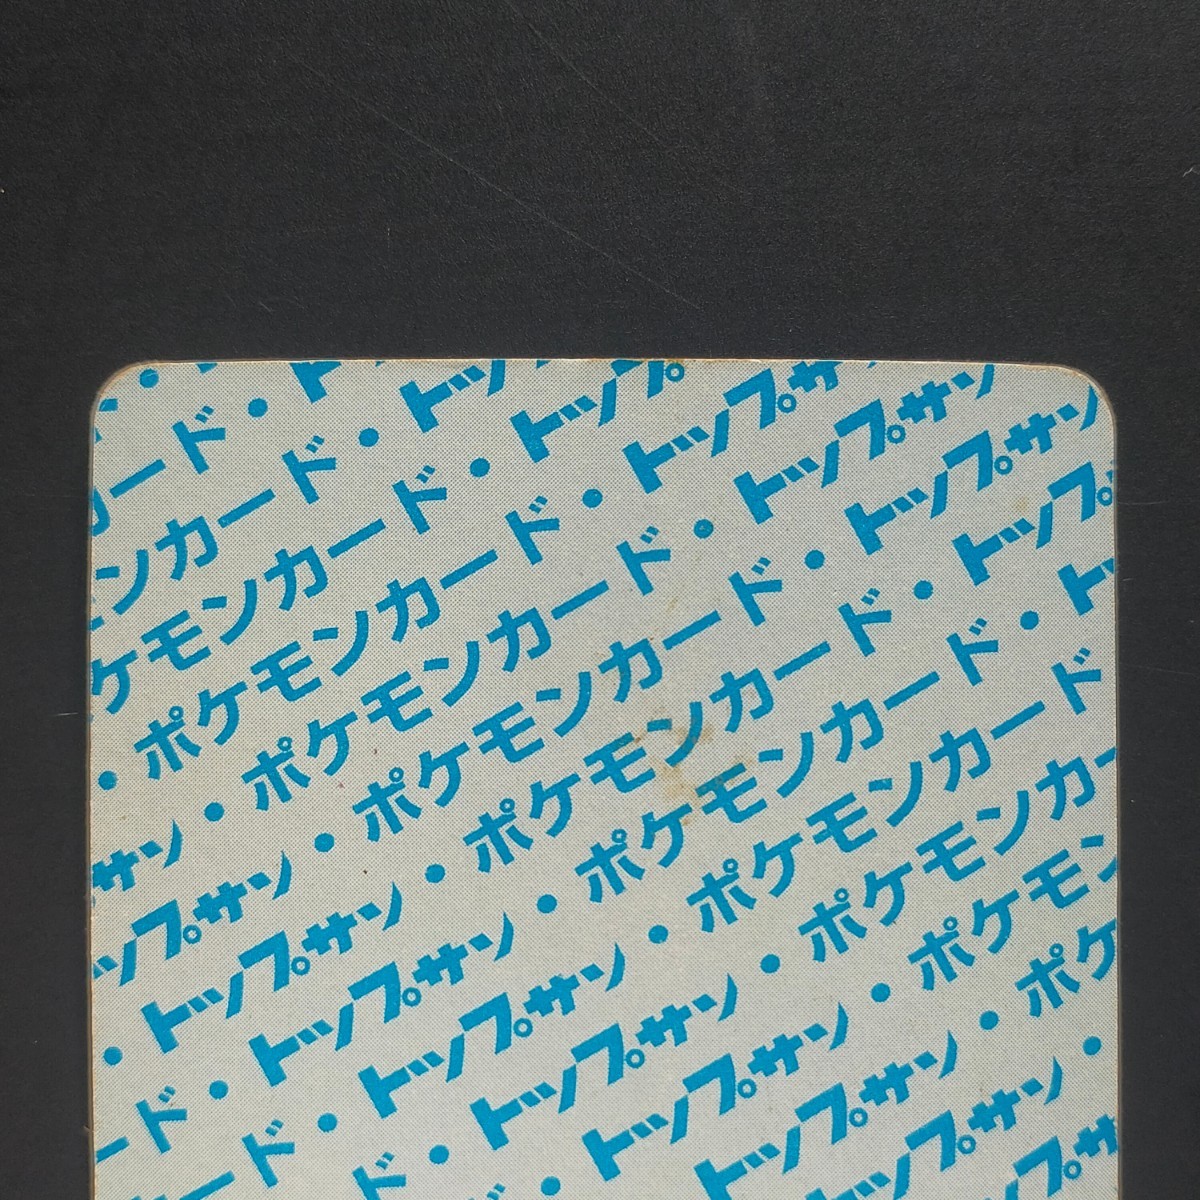 ード・ト
ンカード・トッ
ケモンカード・トップ
・ポケモンカード・トップサン
サン・ポケモンカード・トップサン
ップサン・ポケモンカード・トップサン
・トップサン・ポケモンカード・トップ
ード・トップサン・ポケモンカード・ト
ード・トップサン・ポケモンカード
ド・トップサン・ポケモンカー
・トップサン・ポケモン
トップサン・ポケ
プサン・
プサ